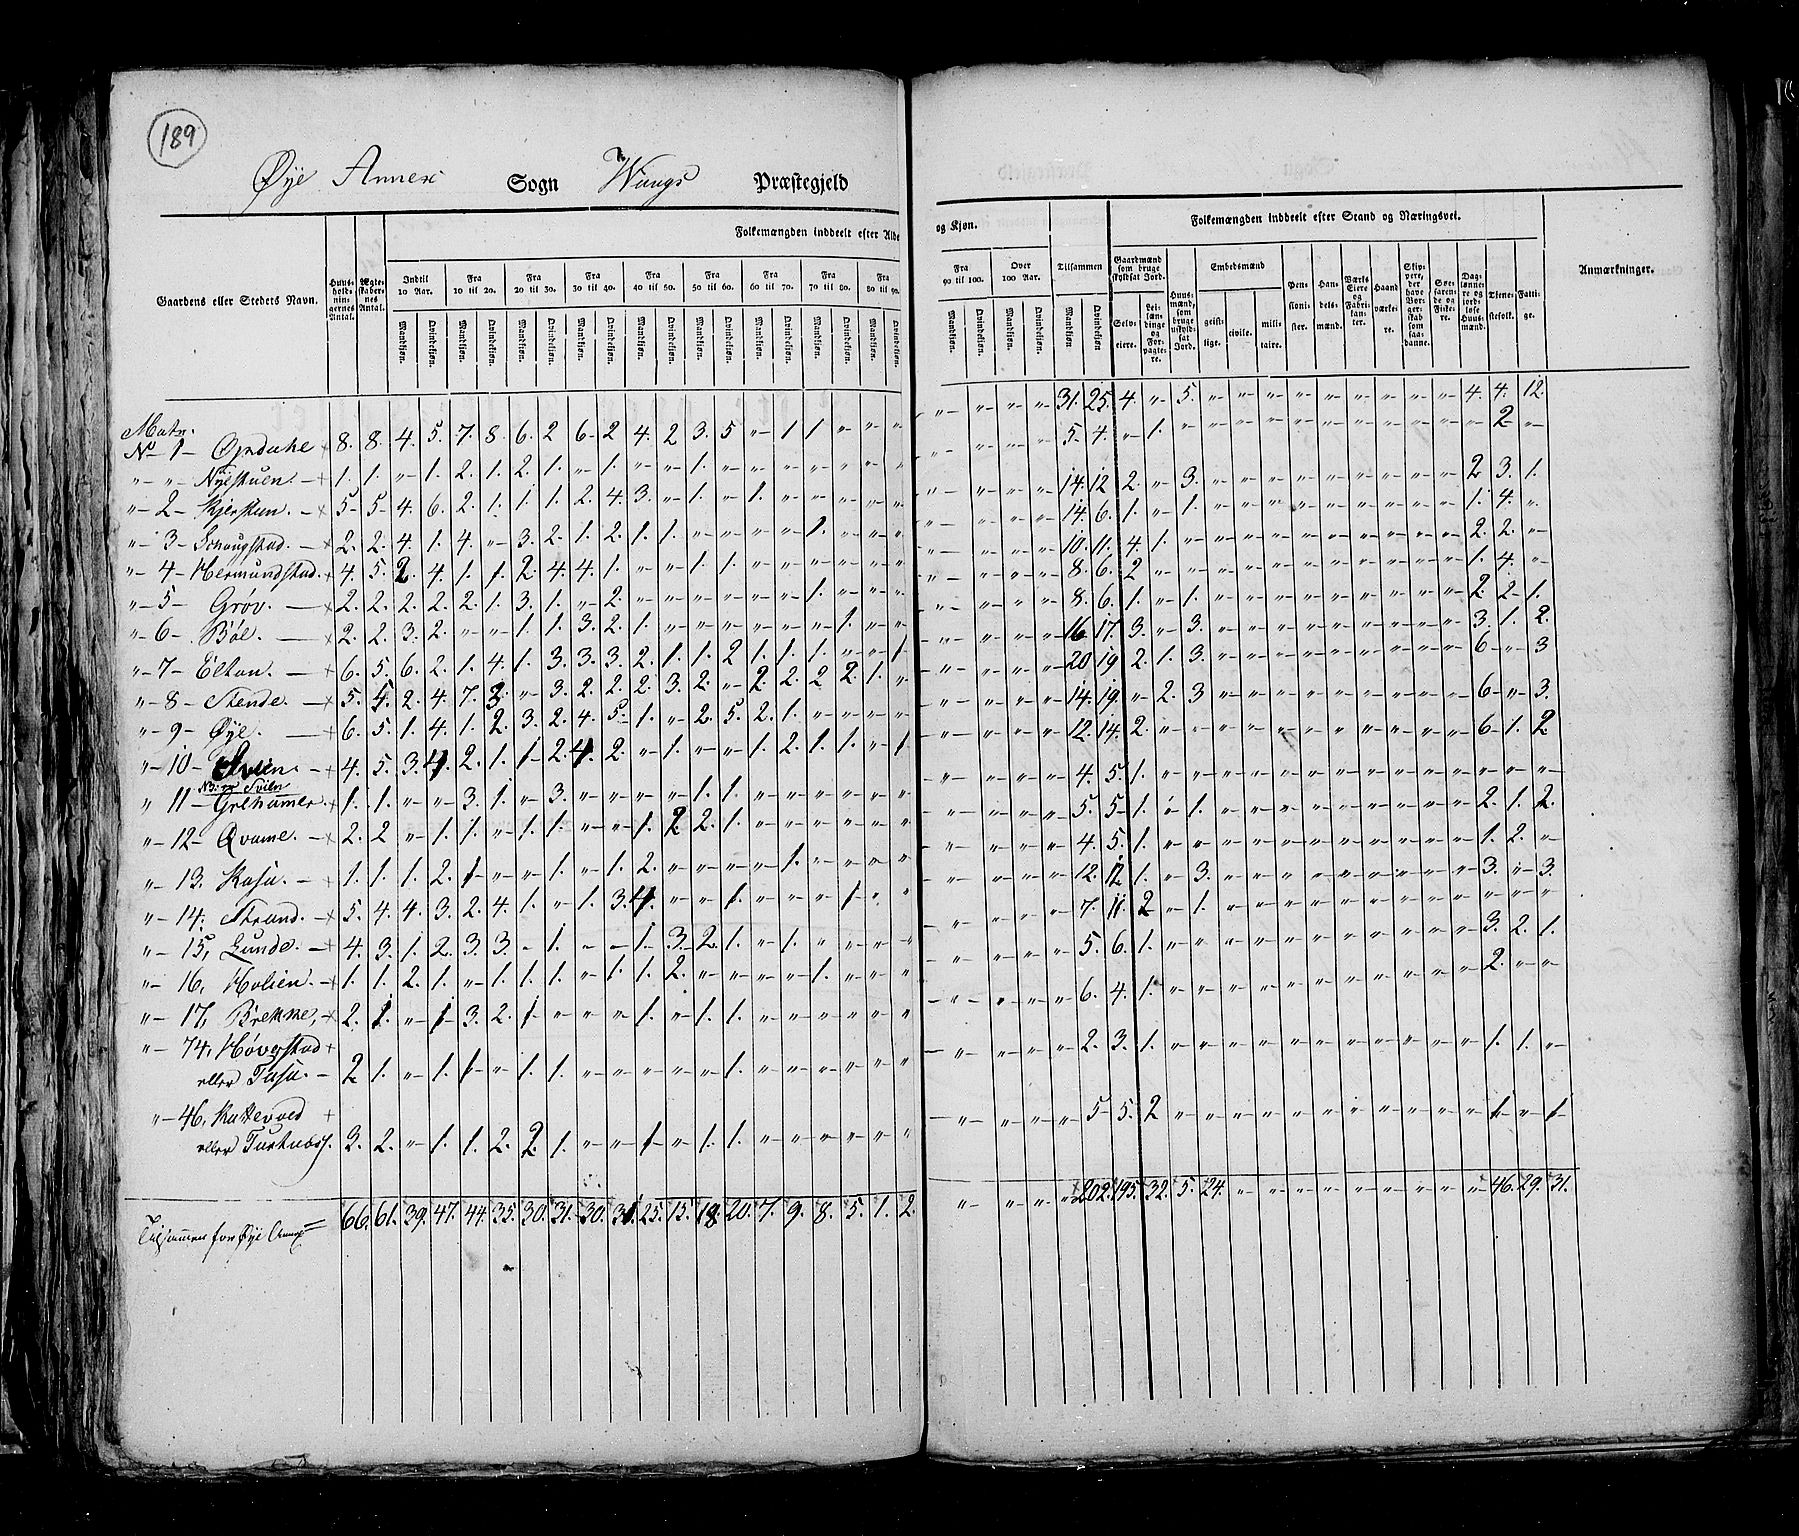 189
Øye Annex Sogn Wangs Præstegjeld
Gaardens eller Stedets Navn.
Huusholdningernes Antal.
Ægteskabernes Antal.
Folkemængden inddeelt efter Alder og Kjøn.
Indtil 10 Aar. Fra 10 til 20. Fra 20 til 30. Fra 30 til 40. Fra 40 til 50. Fra 50 til 60. Fra 60 til 70. Fra 70 til 80. Fra 80 til 90. Fra 90 til 100. Over 100 Aar. Tilsammen
Mandkjøn. Qvindekjøn.
Folkemængden inddeelt efter Stand og Næringsvei.
Gaardmænd som bruge skyldsat Jord.
Selveiere. Leilændinge og Forpagtere.
Huusmænd, som bruge uskyldsat Jord.
Embedsmænd
geistlige. civile. militaire.
Pensionister. Handelsmænd. Værks Eiere og Fabrikanter. Haandværkere. Skippere, der have Borgerskab som saadanne. Søefarende og Fiskere. Daglønnere og jordløse Huusmænd. Tjenestefolk. Fattige.
Anmærkninger.
Matr.
No 1 Opdahe 8. 8. 4. 5. 7. 8. 6. 2 6. 2 4. 2 3. 5 " 1 1. " " " " " " " 31. 25. 4. " 5. " " " " " " " " " 4. 4. 12.
" " Nÿestuen. 1. 1. " 1. 2. 1. 2. 1. " 1. " " 1. " " " " " " " " " " " 5. 4. " 1. " " " " " " " " " " " 2 "
" 2 Kjerstun. 5 5 4. 6. 2. 1. 1. 1. 2. 4. 3. " 1. " 1. " " " " " " " " " 14. 12 2. " 3. " " " " " " " " " 2 3. 1.
" 3 Schougstad. 2. 2. 4. 1. 4. " 3. 2. 1. 2. 1. 1. " " " " 1. " " " " " " " 14. 6. 1. " 1. " " " " " " " " " 1. 4. "
" 4 Hermundstad. 4. 5. 2. 4. 1. 1. 2. 4. 4. 1. " " 1. 1. " " " " " " " " " " 10. 11. 4. 1. " " " " " " " " " " 2. 2. "
" 5 Grøv. 2. 2. 2. 2. 2. 1. 3. 1. " 2. " " " " " " 1. " " " " " " " 8. 6. 2 " " " " " " " " " " " 1. 4. "
" 6 Bøe. 2. 2. 3. 2. " " 1. 1. 3. 2. 1. " " " " " " 1. " " " " " " 8. 6. 1. " 1. " " " " " " " " " 2. 2 1.
" 7 Elton. 6. 5. 6. 2. 1. 4. 1. 3. 3. 3. 2. 1. 1. 2 1. 1. 1. " " 1 " " " " 16. 17. 3. " 3. " " " " " " " " " 3. 1. 2.
" 8 Stende. 5. 5. 2. 4. 7. 3. " 3. 2. 2. 2. 3. 2. " 2 2. 2 2. 1. " " " " " 20 19 2. 1. 3. " " " " " " " " " 6 " 3
" 9 Øye. 6. 5. 1. 4. 1. 2. 3. 2. 4. 5. 1. " 2. 5. 2. 1. " " " " " " " " 14. 19. " 2. 3 " " " " " " " " " 6 " 3.
" 10 Svien. 4. 5. 3. 4. 2. 1. 1. 2. 4. 2. " 1. " " 1. 2. 1. 1. " 1 " " " " 12. 14. 2. " " " " " " " " " " " 6. 1. 2
" 11 Grihamer. 1. 1. " " 3. 1. " 3. " " " " 1. 1. " " " " " " " " " " 4. 5. 1. " " " " " " " " " " " " " "
" 12 Qvame. 2. 2 " 1. 1. " 1. 1. " " 1. 2 2. 1. " " " " " " " " " " 5. 5 1. " 1. " " " " " " " " " 2. 1. 2.
" 13. Kasa. 1. 1. 1. 2. 1 " " 1. " 1. 2. " " " " 1. " " " " " " " " 4. 5. 1. " " " " " " " " " " " 1. 2. "
" 14. Strand. 5. 4. 4. 3. 2. 4. 1. " 1. 3. 4. " " 1. " " " 1 " " " " " " 12. 12 1. " 3. " " " " " " " " " 3. " 3.
" 15, Lunde. 4. 3. 1. 2. 3. 3. " 1. " " 1. 3. 2. 1. " 1. " " " " " " " " 7. 11. 2 " 1. " " " " " " " " " " " "
" 16, Holien. 1. 1. 2. 1. " 1. 1. 1. " 1. 1. 2. " " " " 1. " " " " " " " 5. 6. 1. " " " " " " " " " " " 3. 2. 1.
" 17, Brekke, 2. 1. " 1 3. 2. 1 " " " 1. " 1. 1. " " " " " " " " " " 6. 4. 1. " " " " " " " " " " " 2. " "
" 74, Høverstad
eller Tasa. 2. 1. " 1. 1 " 1. 1. " " " " " 1. " " " " " " " " " " 2. 3. 1. " " " " " " " " " " " 1. 1. "
" 46,
eller 3. 2. " 1. 1. 2. 2. 1. " " 1 " 1. 1. " " " " " " " " " " 5 5. 2 " " " " " " " " " " " 1 " 1
Tilsammen for Øye Annex = 66. 61. 39. 47. 44. 35. 30. 31. 30. 31. 25. 15. 18. 20. 7. 9. 8. 5. 1. 2. " " " " 202. 195. 32. 5. 24. " " " " " " " " " 46. 29. 31.